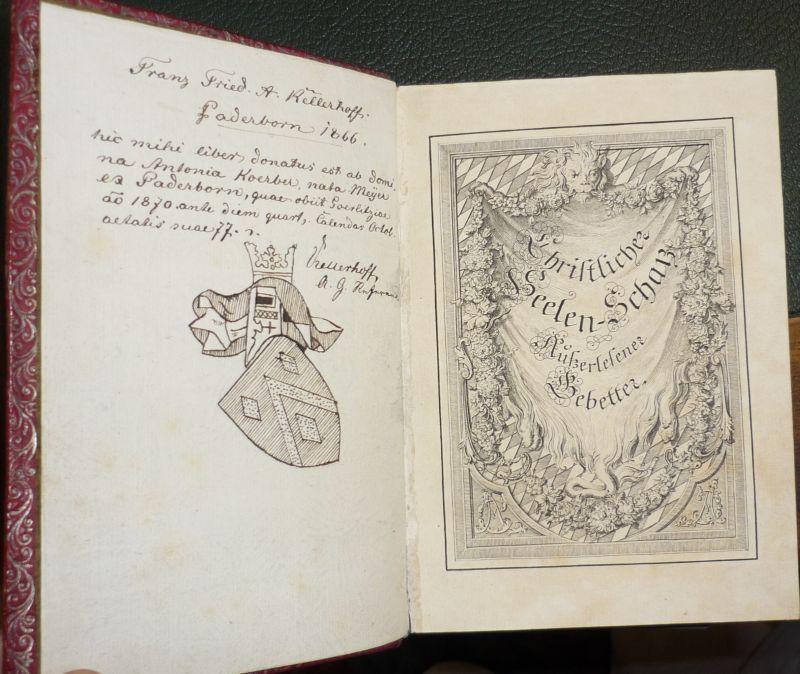 Franz Fried. A. Kellerhoff.
Paderborn 1866.
hic mihi liber donatus est ab domi
na Antonia Koerber, nata Meyer
ex Paderborn, quae obiit Goerlitziae
aō 1870. ante diem quart. Calendas Octob.
aetatis suae 77.
Kellerhoff
A. G.
Christlicher
Seelen-Schatz
Außerlesener
Gebetter.